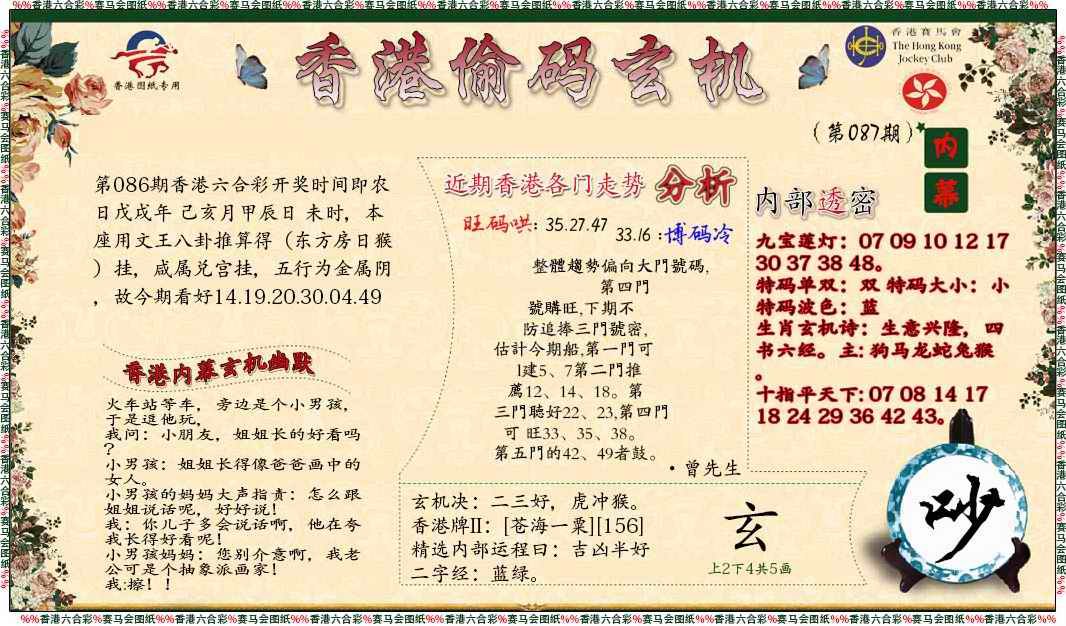 %%香港六合彩%赛马会图纸%%香港六合彩%赛马会图纸%%香港六合彩%赛马会图纸%%香港六合彩%赛马会图纸%%香港六合彩%赛马会图纸%%香港六合彩%赛马会图纸%%香港六合彩%%
香港图纸专用
香港偷码玄机
香港賽馬會
The Hong Kong
Jockey Club
(第087期)
内
幕
第086期香港六合彩开奖时间即农
日戊戌年 己亥月甲辰日 未时，本
座用文王八卦推算得（东方房日猴
）挂，咸属兑宫挂，五行为金属阴
，故今期看好14.19.20.30.04.49
香港内幕玄机幽默
火车站等车，旁边是个小男孩，
于是逗他玩，
我问：小朋友，姐姐长的好看吗
？
小男孩：姐姐长得像爸爸画中的
女人。
小男孩的妈妈大声指责：怎么跟
姐姐说话呢，好好说！
我：你儿子多会说话啊，他在夸
我长得好看呢！
小男孩妈妈：您别介意啊，我老
公可是个抽象派画家！
我:擦！！
近期香港各门走势 分析
旺码哄: 35.27.47
33.16 :博码冷
整體趨勢偏向大門號碼,
第四門
號購旺,下期不
防追捧三門號密,
估計今期船,第一門可
l建5、7第二門推
薦12、14、18。第
三門聴好22、23,第四門
可 旺33、35、38。
第五門的42、49者鼓。
·曾先生
内部透密
九宝莲灯：07 09 10 12 17
30 37 38 48。
特码单双：双 特码大小：小
特码波色：蓝
生肖玄机诗：生意兴隆，四
书六经。主: 狗马龙蛇兔猴
。
十指平天下: 07 08 14 17
18 24 29 36 42 43。
玄机决：二三好，虎冲猴。
香港牌II：[苍海一粟][156]
精选内部运程曰：吉凶半好
二字经：蓝绿。
玄
上2下4共5画
吵
%%香港六合彩%赛马会图纸%%香港六合彩%赛马会图纸%%香港六合彩%赛马会图纸%%香港六合彩%赛马会图纸%%香港六合彩%赛马会图纸%%香港六合彩%赛马会图纸%%香港六合彩%%